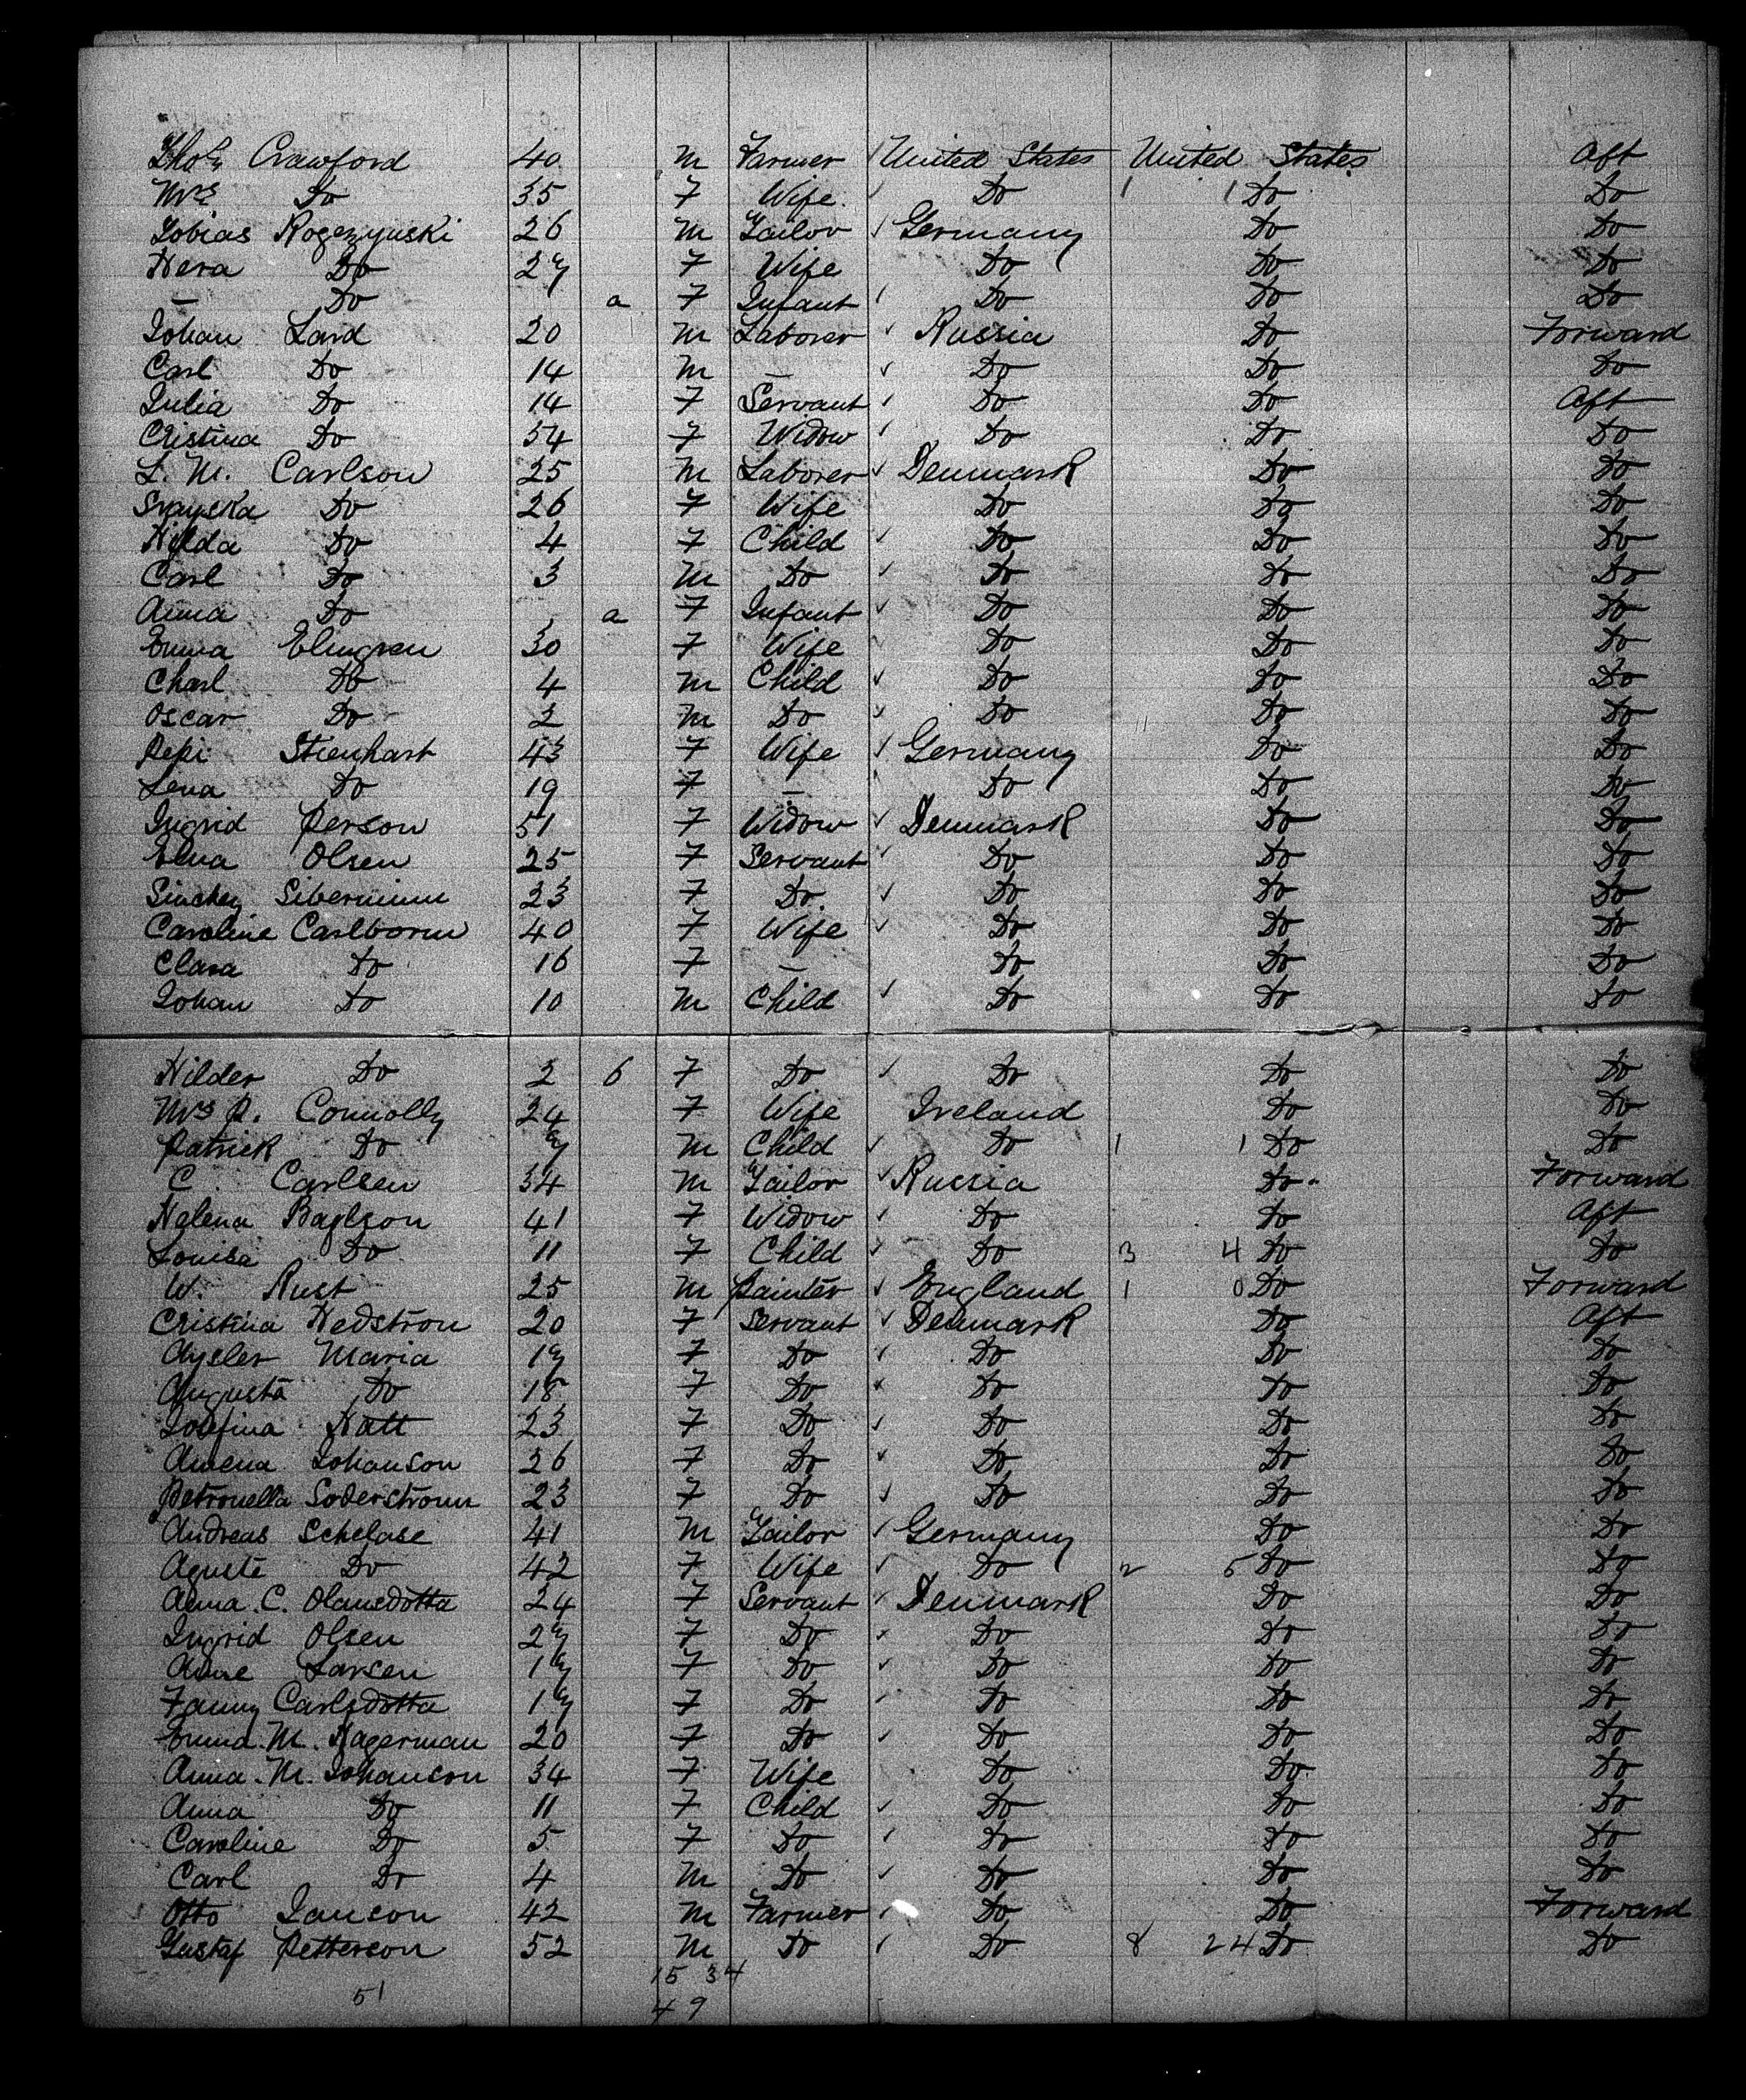 Thos Crawford 40 M Farmer United States United States Aft
Mrs Do 35 F Wife Do 1 1 Do Do
Tobias Rogezynski 26 M Tailor Germany Do Do
Hera Do 27 F Wife Do Do Do
— Do a F Infant Do Do Do
Johan Lard 20 M Laborer Russia Do Forward
Carl Do 14 M — Do Do Do
Julia Do 14 F Servant Do Do Aft
Cristina Do 54 F Widow Do Do Do
L. M. Carlson 25 M Laborer Denmark Do Do
Do 26 F Wife Do Do Do
Hilda Do 4 F Child Do Do Do
Carl Do 3 M Do Do Do Do
Anna Do a F Infant Do Do Do
Emma Elmgren 30 F Wife Do Do Do
Charl Do 4 M Child Do Do Do
Oscar Do 2 M Do Do Do Do
Pepi Stienhart 43 F Wife Germany Do Do
Lena Do 19 F — Do Do Do
Ingrid Person 51 F Widow Denmark Do Do
Elna Olsen 25 F Servant Do Do Do
23 F Do. Do Do Do
Caroline Carlborm 40 F Wife Do Do Do
Clara Do 16 F — Do Do Do
Johan Do 10 M Child Do Do Do
Hilder Do 2 6 F Do Do Do Do
Mrs P. Connolly 24 F Wife Ireland Do Do
Patrick Do 7 M Child Do 1 1 Do Do
C Carlsen 34 M Tailor Russia Do Forward
Helena Baglson 41 F Widow Do Do Aft
Louisa Do 11 F Child Do 3 4 Do Do
W. Rust 25 M Painter England 1 0 Do Forward
Cristina Hedstron 20 F Servant Denmark Do Aft
Aysler Maria 17 F Do Do Do Do
Augusta Do 18 F Do Do Do Do
Josefina Hatt 23 F Do Do Do Do
Amena Johanson 26 F Do Do Do Do
Petronella Soderstrom 23 F Do Do Do Do
Andreas Schelase 41 M Tailor Germany Do Do
Aguste Do 42 F Wife Do 2 5 Do Do
Anna. C. Olausdotta 24 F Servant Denmark Do Do
Ingrid Olsen 27 F Do Do Do Do
Anne Larsen 17 F Do Do Do Do
Fanny Carlsdotta 17 F Do Do Do Do
Emma. M. Hagerman 20 F Do Do Do Do
Anna. M. Johanson 34 F Wife Do Do Do
Anna Do 11 F Child Do Do Do
Caroline Do 5 F Do Do Do Do
Carl Do 4 M Do Do Do Do
Otto Janson 42 M Farmer Do Do Forward
Gustaf Petterson 52 M Do Do 8 24 Do Do
15 34
51 49